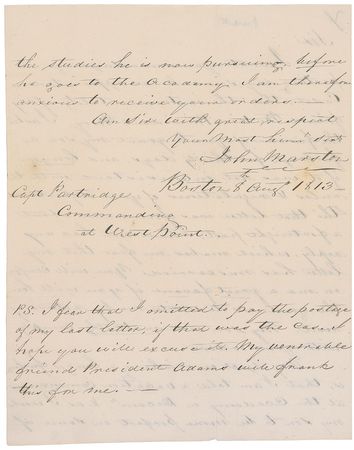 the studies he is now pursuing, before
he goes to the Academy. I am therefore
anxious to receive your orders. —
Am Sir with great respect
Your Most hum' Svt
John Marston
Boston 8th Augt 1813 —
Capt Partridge
Commanding
at West Point.
P.S. I fear that I omitted to pay the postage
of my last letter, if that was the case, I
hope you will excuse it. My venerable
friend President Adams will frank
this for me. —